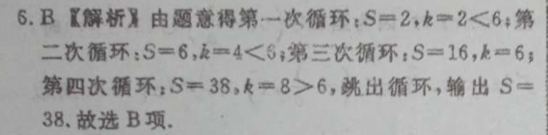 6. B 【解析】由题意得第一次循环:S=2,k=2<6;第
二次循环:S=6,k=4<6;第三次循环:S=16,k=6;
第四次循环:S=38,k=8>6,跳出循环,输出 S=
38.故选 B 项.